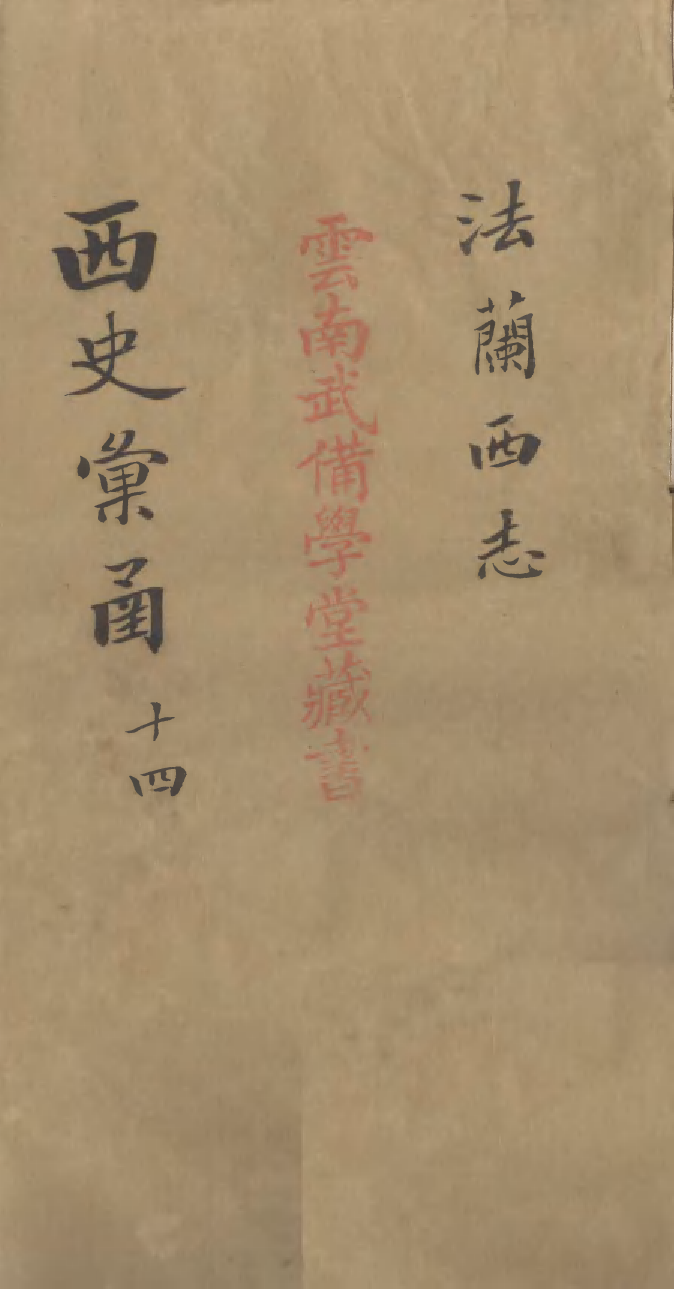 法蘭西志
雲南武備學堂藏書
西史彙圅 十四